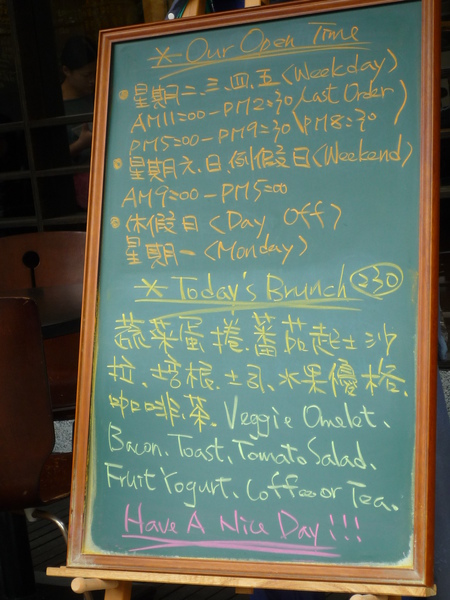 * Our Open Time
• 星期二、三、四、五 (Weekday)
AM11:00-PM2:30 (Last Order
PM5:00-PM9:30 PM8:30)
• 星期六、日、例假日 (Weekend)
AM9:00-PM5:00
• 休假日 (Day Off)
星期一 (Monday)
* Today's Brunch 230
蔬菜蛋捲、蕃茄起士沙
拉、培根、土司、水果優格、
咖啡、茶. Veggie Omelet、
Bacon、Toast、Tomato Salad、
Fruit Yogurt、Coffee or Tea.
Have A Nice Day!!!